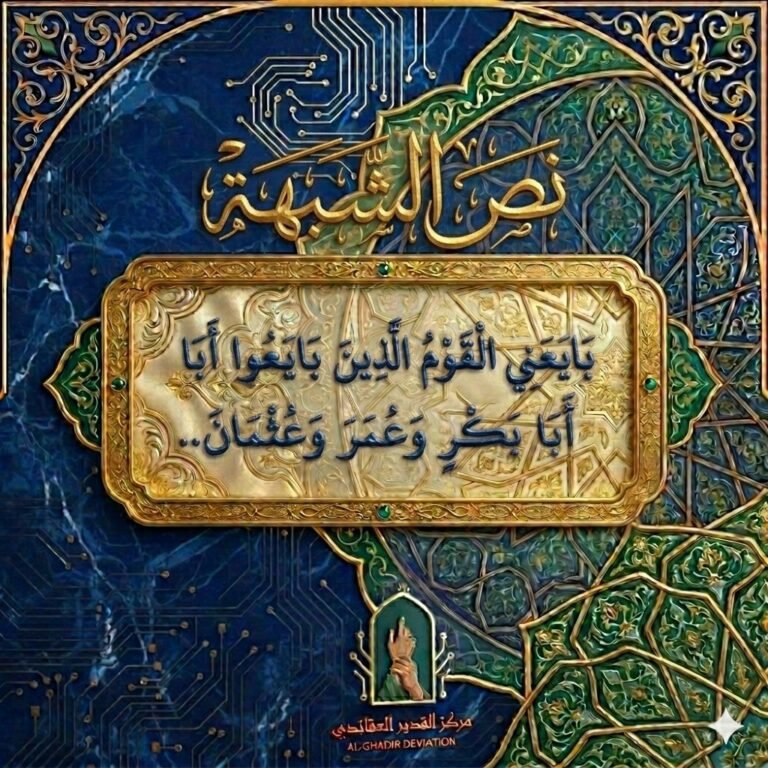 نَصّ الشُّبَهَة
بَايَعَنِي الْقَوْمُ الَّذِينَ بَايَعُوا أَبَا
أَبَا بَكْرٍ وَعُمَرَ وَعُثْمَانَ..
مركز الغدير العقائدي
AL-GHADIR DEVIATION